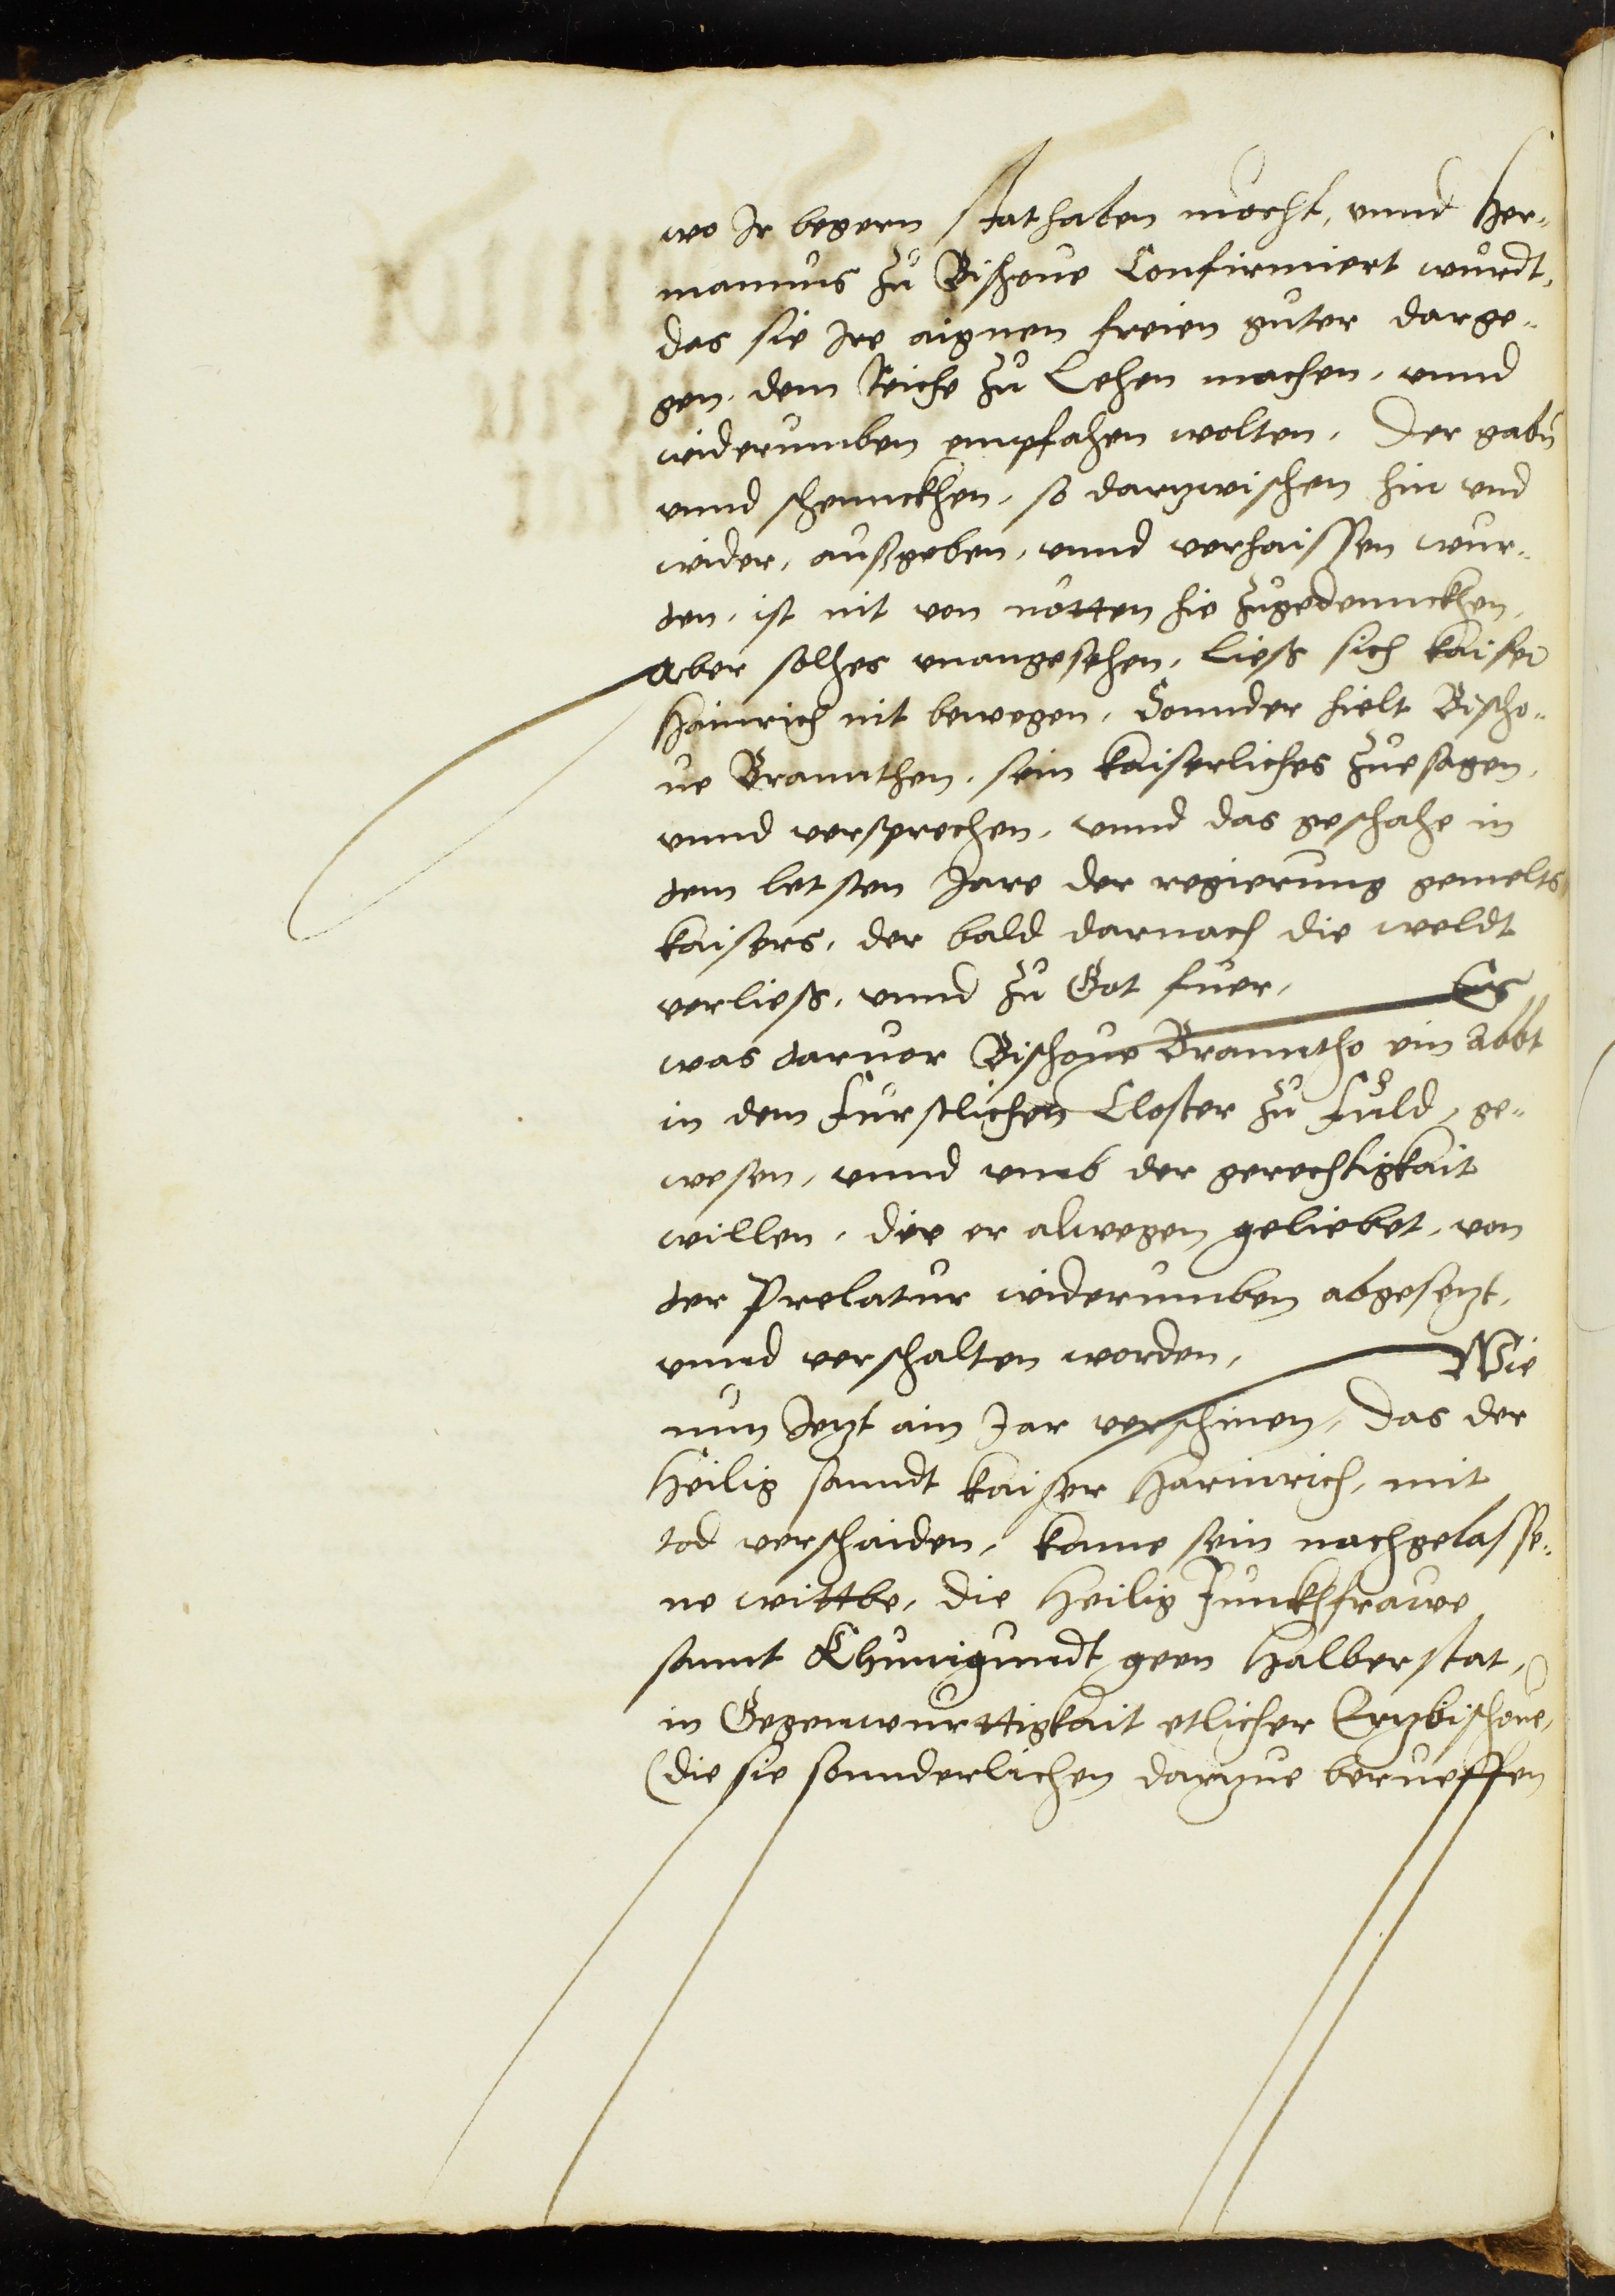 wo Ir begern stathaben möcht, vnnd Her„
mannus zu Bischoue Confirmiert wurdt,
das sie Ire aignen freien guter darge„
gen, dem Reiche zu Lehen machen, vnnd
widerumben empfahen wolten, Der gabn
vnnd schennckhen, so darzwischen hin vnd
wider, außgeben, vnnd verhaissen wur„
den, ist nit von nötten hie zugedennckhen,
Aber solhes vnangesehen, Liess sich kaiser
Hainrich nit bewegen, Sonnder hielt Bischo„
ue Brannthen, sein kaiserliches zuesagen,
vnnd versprechen, vnnd das geschahe in
dem letsten Jare der regierung gemelts
kaisers, der bald darnach die weldt
verliess, vnnd zu Got fuer, Es
was daruor Bischoue Branntho ein Abbt
in dem Fürstlichen Closter zu Fuld, ge„
wesen, vnnd vmb der gerechtigkait
willen, die er alwegen geliebet, von
der Prelatur widerumben abgesezt,
vnnd verschalten worden, Wie
nun Jezt ain Jar verschinen, das der
Heilig sanndt kaiser Hainrich, mit
tod verschaiden, kame sein nachgelasse„
ne wittbe, die Heilig Junckhfrawe
sannt Khunigundt geen Halberstat,
in Gegenwurttigkait etlicher Erzbischoue,
(die sie sonnderlichen darzue berueffen